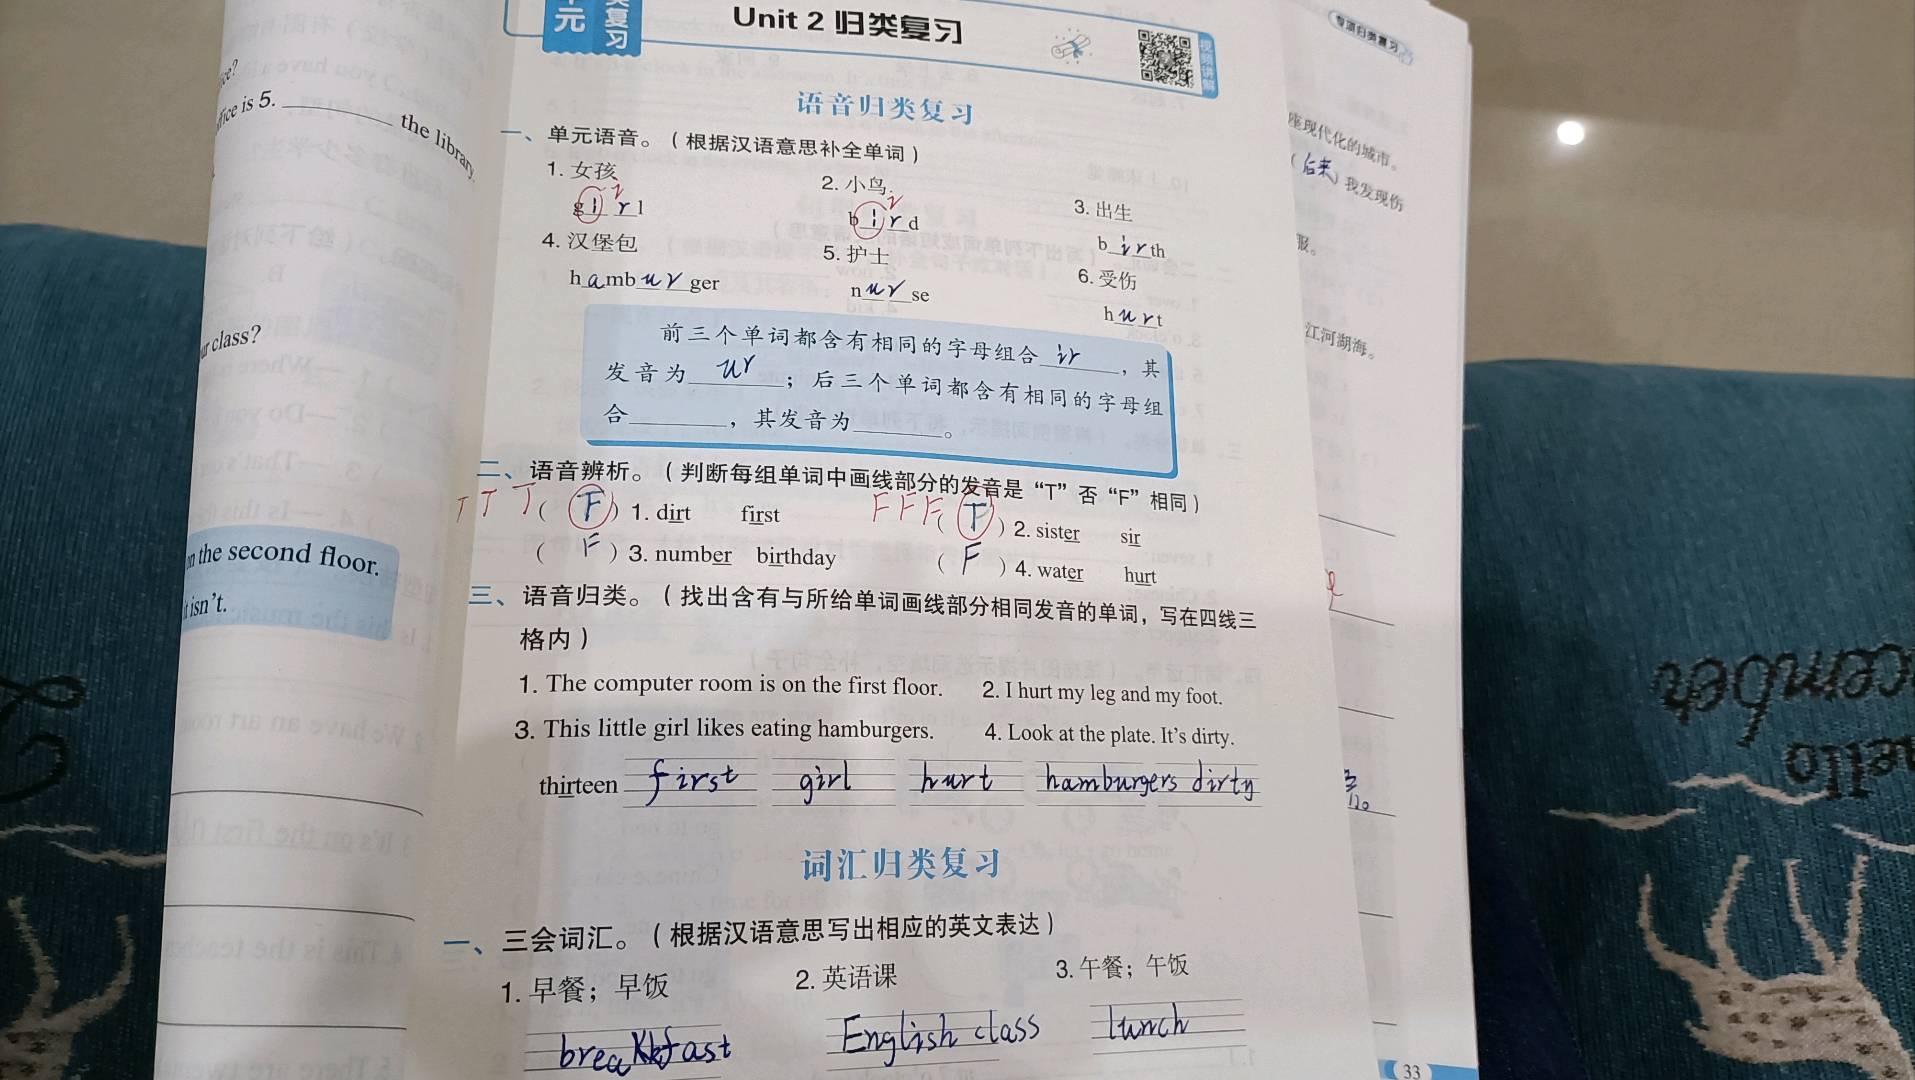 元 复习
Unit 2 归类复习
视频讲解
专项归类复习
语音归类复习
一、单元语音。(根据汉语意思补全单词)
1. 女孩 2. 小鸟 3. 出生
girl bird birth
4. 汉堡包 5. 护士 6. 受伤
hamburger nurse hurt
前三个单词都含有相同的字母组合 ir ,其
发音为 ur ;后三个单词都含有相同的字母组
合______,其发音为______。
二、语音辨析。(判断每组单词中画线部分的发音是“T”否“F”相同)
T T T ( F ) 1. dirt first F F F ( T ) 2. sister sir
( F ) 3. number birthday ( F ) 4. water hurt
三、语音归类。(找出含有与所给单词画线部分相同发音的单词,写在四线三
格内)
1. The computer room is on the first floor. 2. I hurt my leg and my foot.
3. This little girl likes eating hamburgers. 4. Look at the plate. It's dirty.
thirteen first girl hurt hamburgers dirty
词汇归类复习
一、三会词汇。(根据汉语意思写出相应的英文表达)
1. 早餐;早饭 2. 英语课 3. 午餐;午饭
breakfast English class lunch
33
is 5. ______ the library.
class?
the second floor.
isn't.
座现代化的城市。
(后来) 我发现伤
服。
江河湖海。